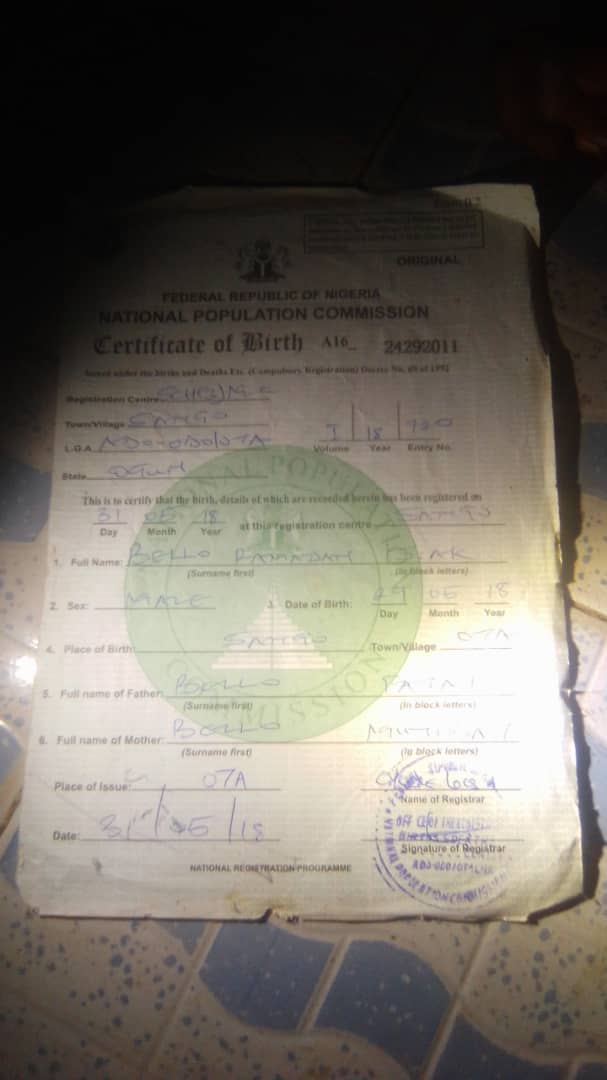 ORIGINAL
FEDERAL REPUBLIC OF NIGERIA
NATIONAL POPULATION COMMISSION
Certificate of Birth A16_ 24292011
Issued under the Births and Deaths Etc. (Compulsory Registration) Decree No. 69 of 1992
Registration Centre
Town/Village SANGO
L.G.A. ADO-ODO/OTA I 18 720
Volume Year Entry No.
State OGUN
This is to certify that the birth, details of which are recorded herein has been registered on
31 05 18 at this registration centre SANGO
Day Month Year
1. Full Name: BELLO RAMADAN
(Surname first) (In block letters)
2. Sex: MALE 3. Date of Birth: 29 05 18
Day Month Year
4. Place of Birth: SANGO Town/Village OTA
5. Full name of Father: BELLO
(Surname first) (In block letters)
6. Full name of Mother: BELLO
(Surname first) (In block letters)
Place of Issue: OTA
Name of Registrar
Date: 31/05/18
Signature of Registrar
NATIONAL REGISTRATION PROGRAMME